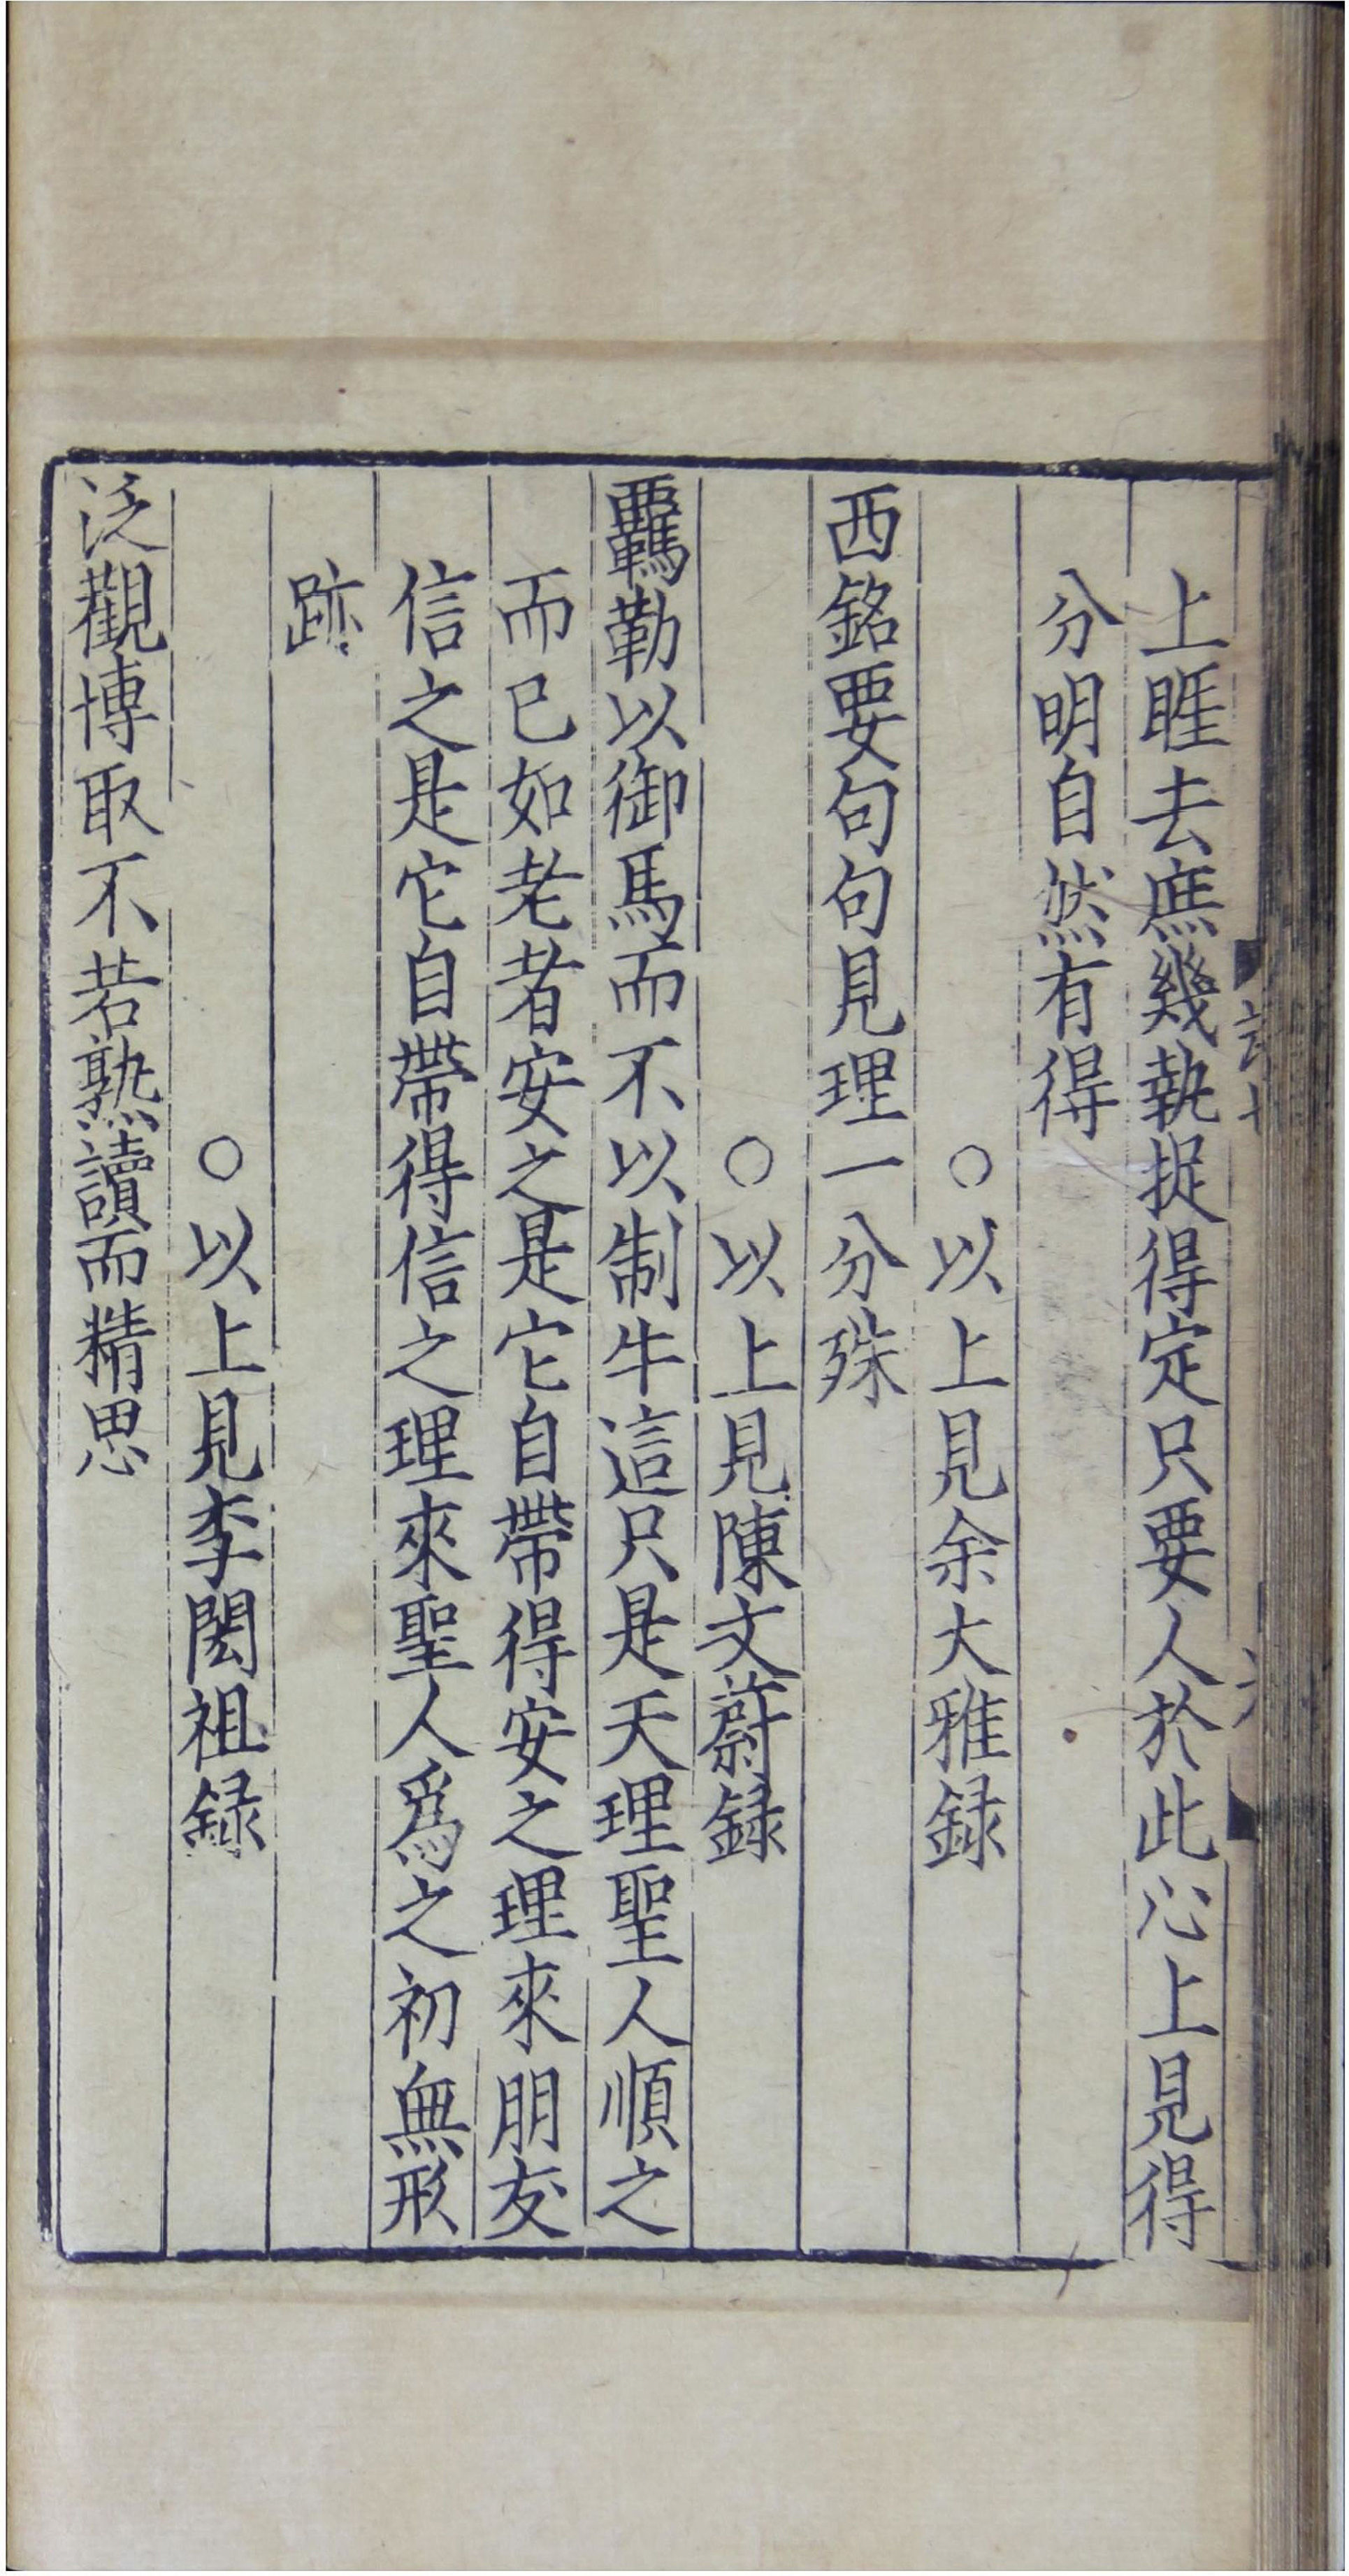 上睚去庶幾執捉得定只要人於此心上見得
分明自然有得
○以上見余大雅録
西銘要句句見理一分殊
○以上見陳文蔚録
羈勒以御馬而不以制牛這只是天理聖人順之
而已如老者安之是它自帶得安之理來朋友
信之是它自帶得信之理來聖人爲之初無形
跡
○以上見李閎祖録
泛觀博取不若熟讀而精思